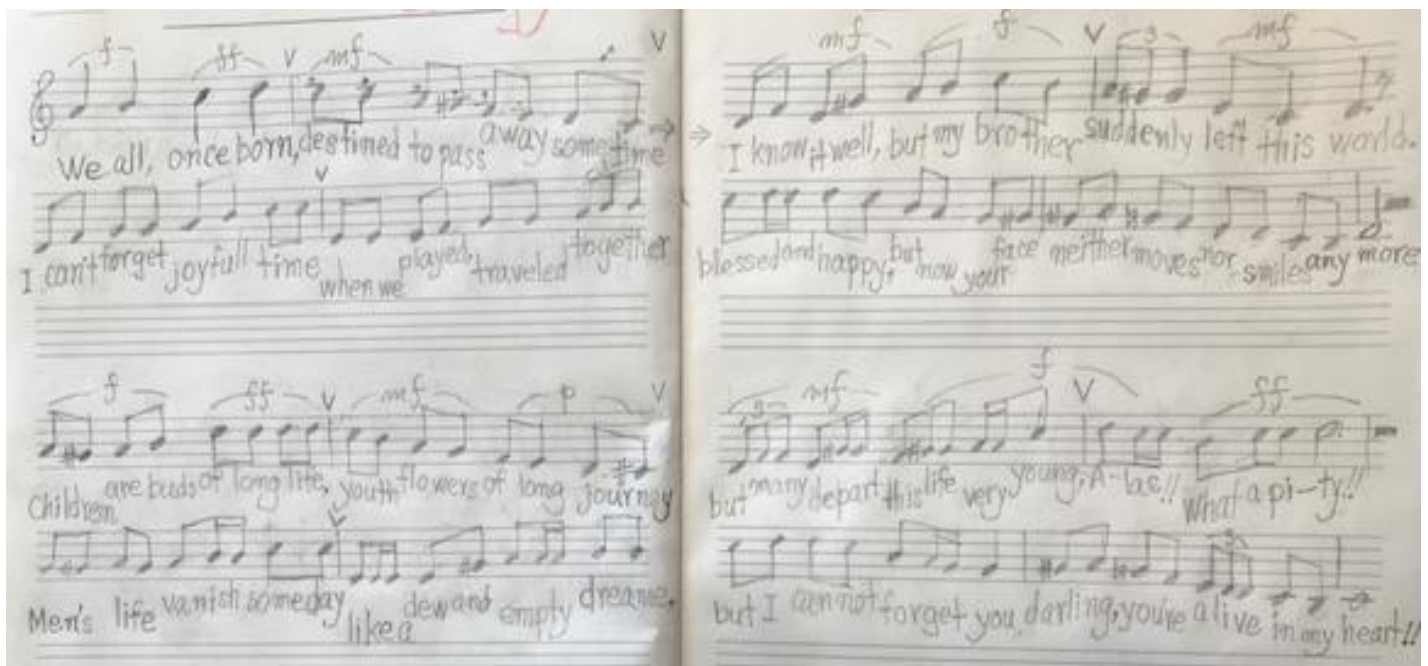 f ff V mf V
We all, once born, destined to pass away sometime →
I can't forget joyfull time when we played, traveled together
f ff V mf p V
Children are buds of long life, youth flowers of long journey
Men's life vanish someday like a dew and empty dreame,
mf f V 3 mf
→ I know it well, but my brother suddenly left this world.
blessed and happy, but now your face neither moves nor smiles any more
3 mf f V ff
but many depart this life very young, A-las!! what a pi-ty!!
but I cannot forget you, darling, you're alive in my heart!!